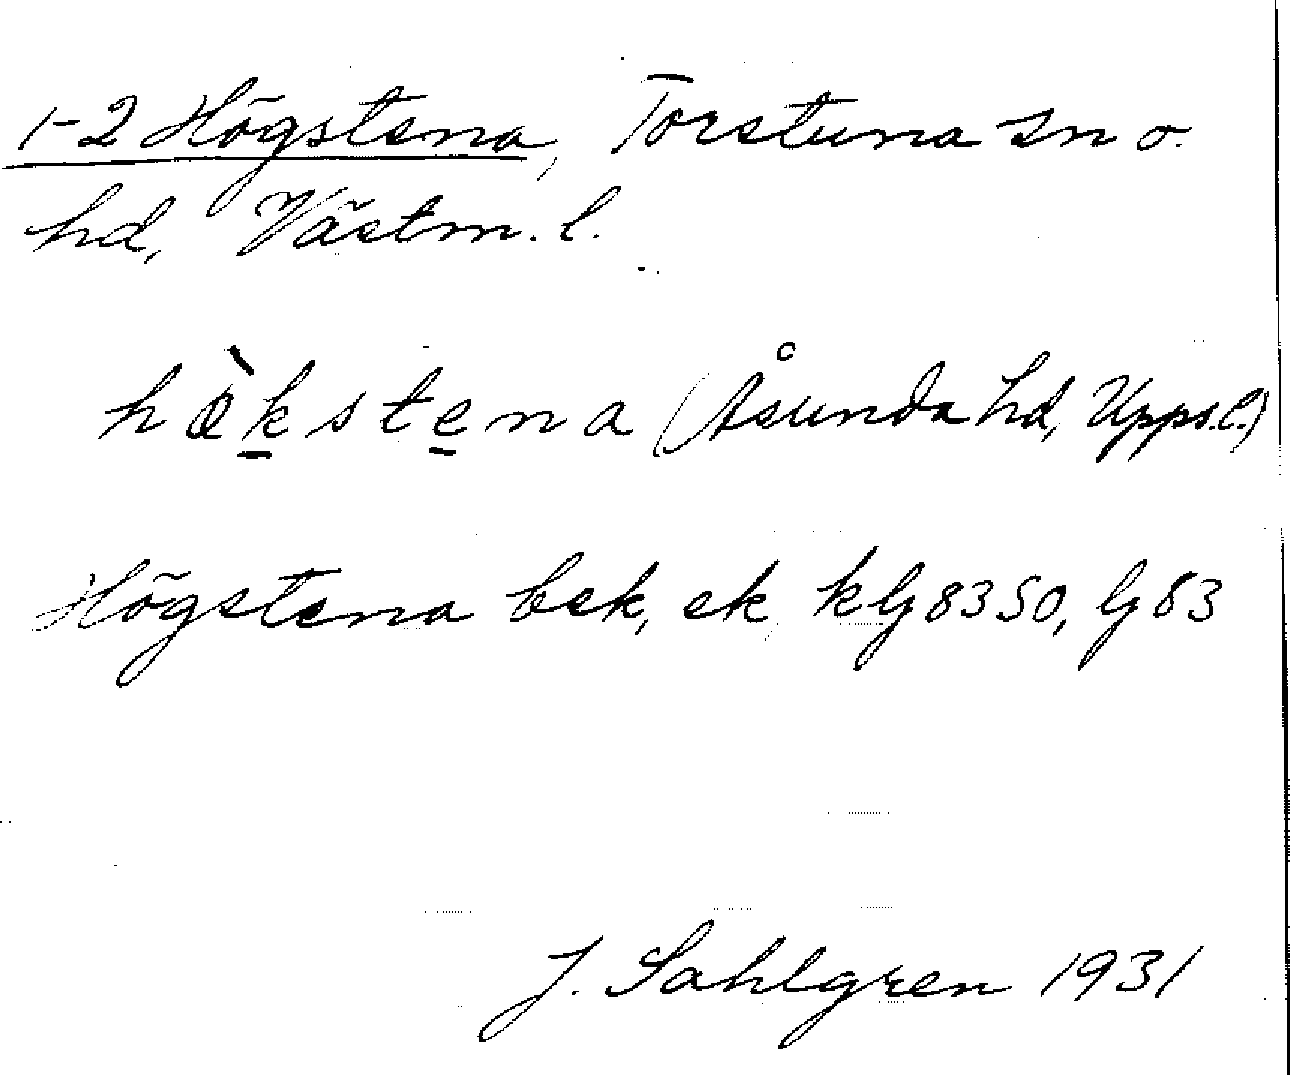 1-2 Högstena, Torstuna sn o.
hd, Västm. l.
hø̀kstena (Åsunda hd, Upps.l.)
Högstena bek, ek kG 8350, G 83
J. Sahlgren 1931